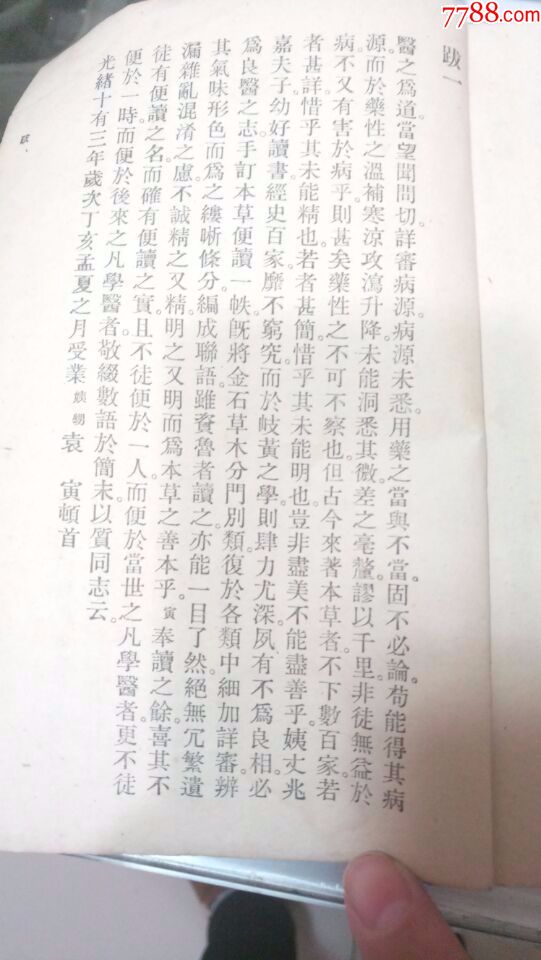 7788.com
跋一
醫之爲道。當望聞問切。詳審病源。病源未悉。用藥之當與不當。固不必論。苟能得其病
源。而於藥性之溫補寒涼。攻瀉升降。未能洞悉其微。差之毫釐。謬以千里。非徒無益於
病。不又有害於病乎。則甚矣藥性之不可不察也。但古今來著本草者。不下數百家。若
者甚詳。惜乎其未能精也。若者甚簡。惜乎其未能明也。豈非盡美不能盡善乎。姨丈兆
嘉夫子。幼好讀書。經史百家。靡不窮究。而於岐黃之學。則肆力尤深。夙有不爲良相。必
爲良醫之志。手訂本草便讀一帙。旣將金石草木。分門別類。復於各類中細加詳審。辨
其氣味形色。而爲之縷晰條分。編成聯語。雖資魯者讀之。亦能一目了然。絕無冗繁遺
漏雜亂混淆之慮。不誠精之又精。明之又明。而爲本草之善本乎。寅奉讀之餘。喜其不
徒有便讀之名。而確有便讀之實。且不徒便於一人。而便於當世之凡學醫者。更不徒
便於一時。而便於後來之凡學醫者。敬綴數語於簡末。以質同志云。
光緒十有三年歲次丁亥孟夏之月受業姨甥袁 寅頓首
跋